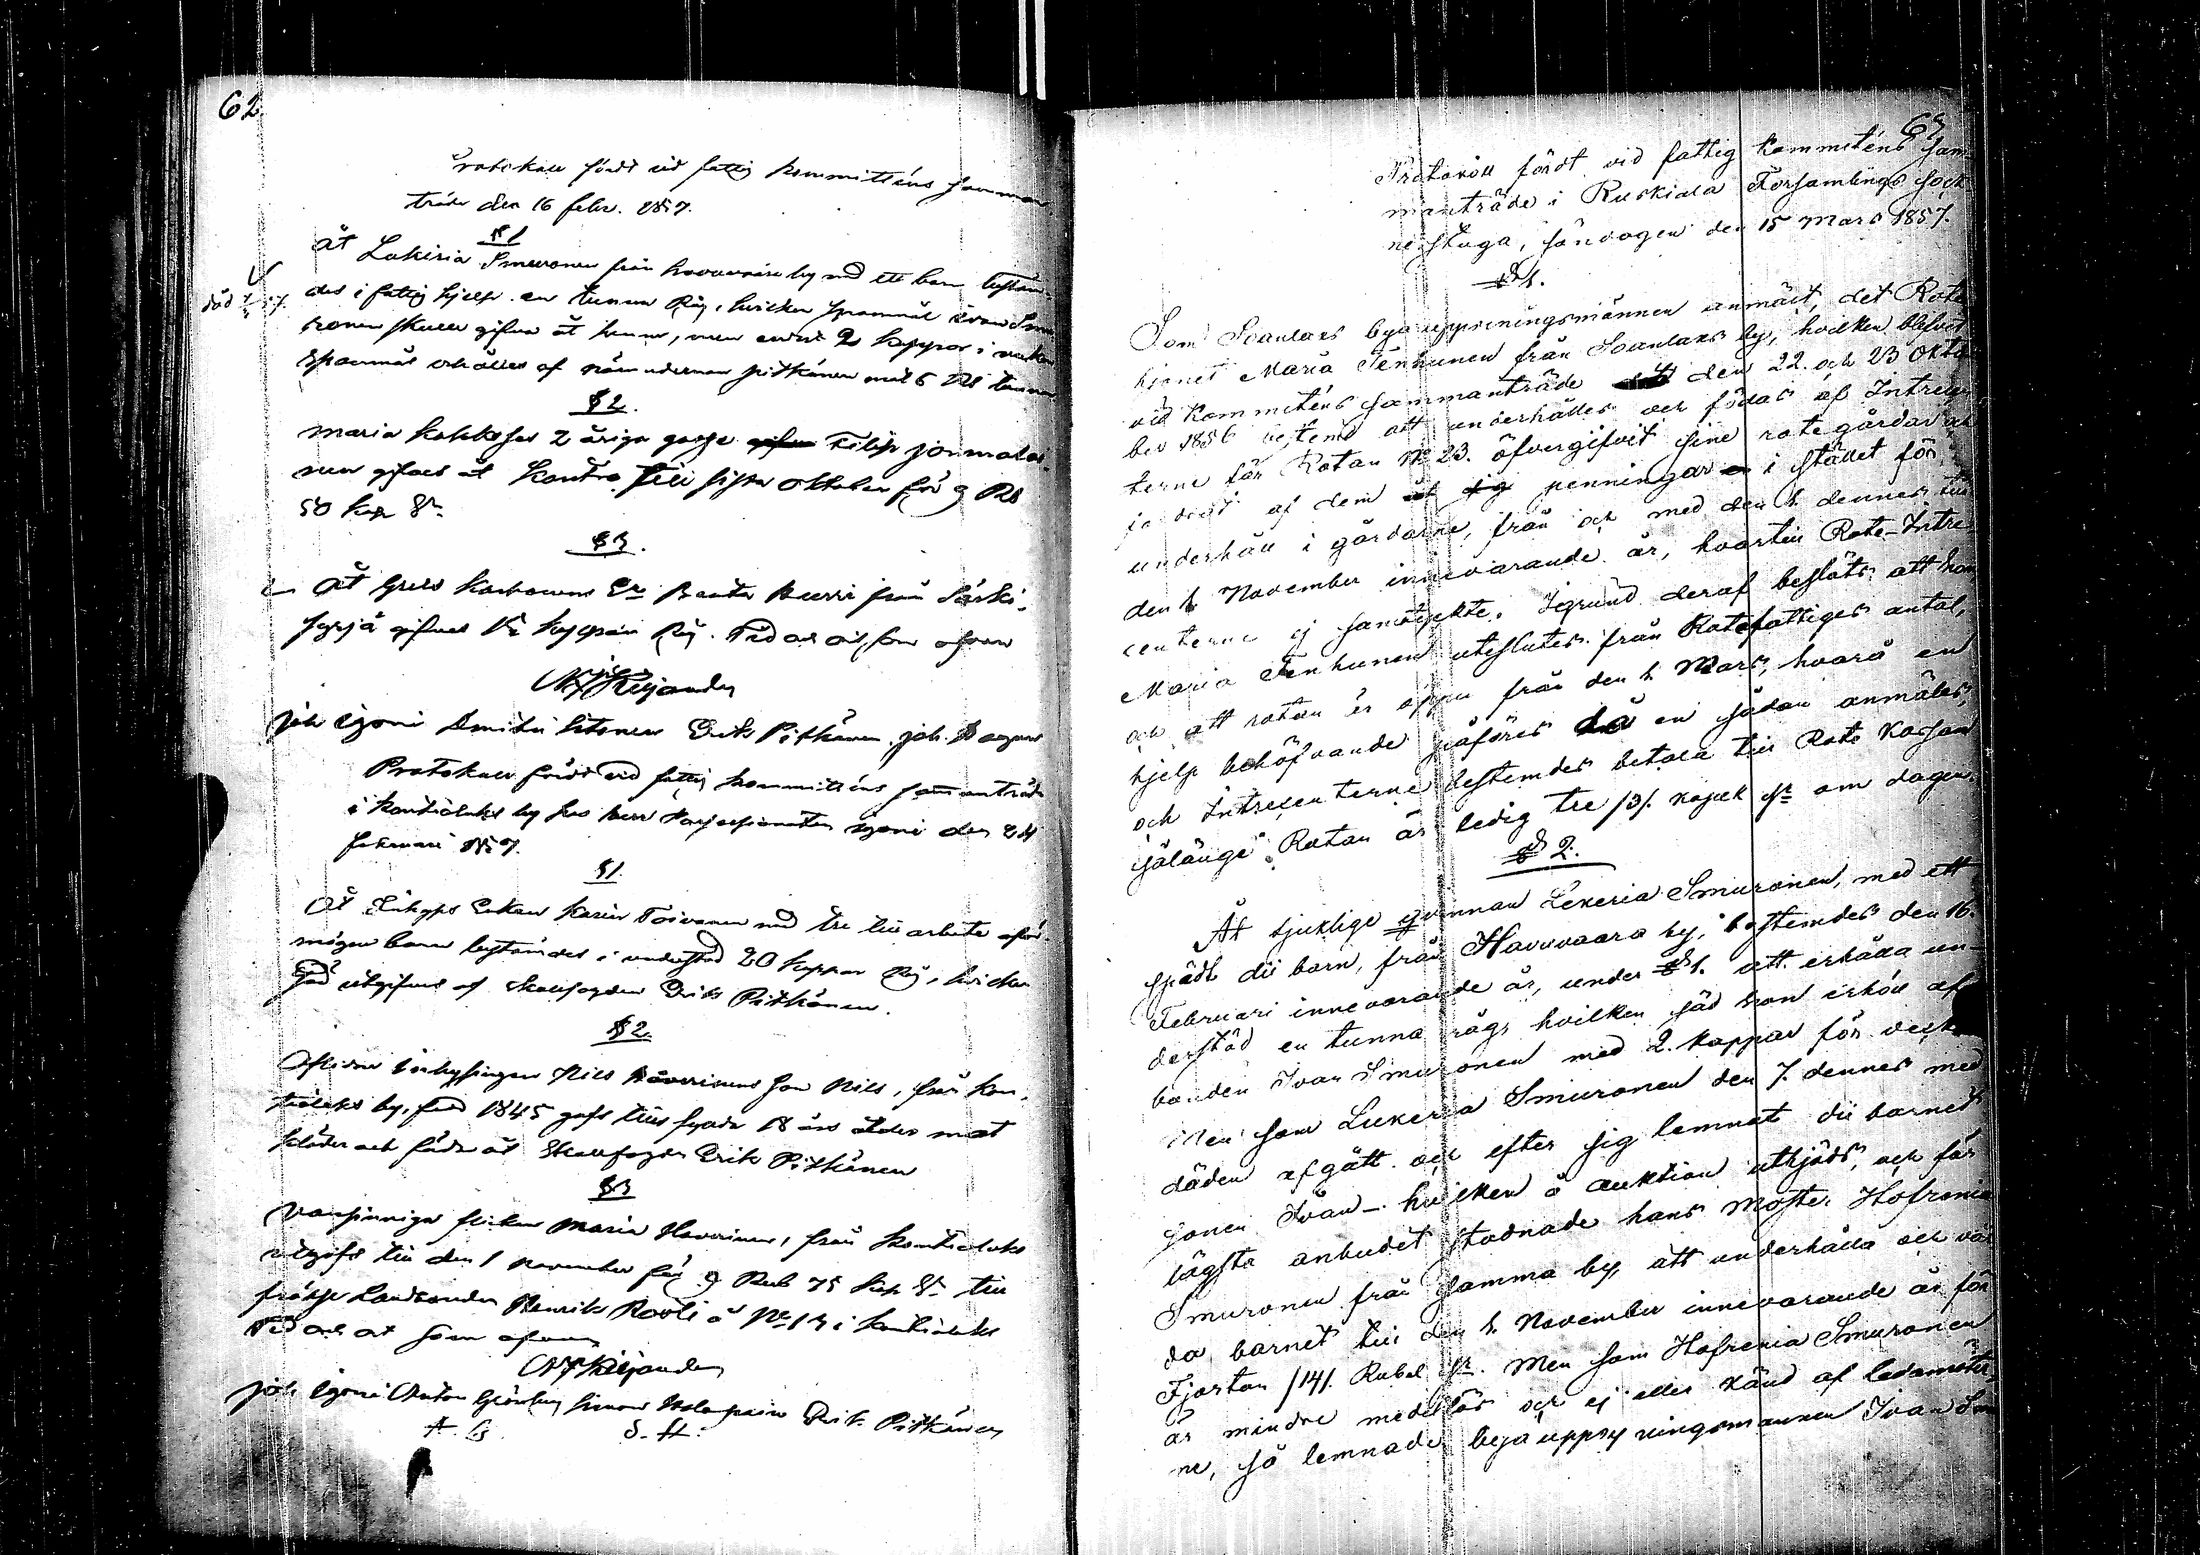 62.
Protokoll fördt vid fattig kommitténs samman-
träde den 16 febr. 1857.
§ 1
Åt Lukeria Smuronen från Havuvaara by med ett barn bestäm-
des i fattig hjelp en tunna Råg, hvilken spannmål Ivan Smu-
ronen skulle gifva åt henne, men endast 2 kappor i veckan
spannmål erhålles af nämndeman Pitkänen med 6 Rb tunnan
död 7/3 57.
§ 2.
Maria Kokkos 2 åriga gosse Filip
gifves åt till sista Oktober för 9 Rb
50 kop Sr
§ 3.
Åt Karhonens Enka från Särki-
syrjä gifves kappar Råg. Tid och ort som ofvan
Joh Egoni Dmitri Sitonen Erik Pitkänen Joh.
Protokoll fördt vid fattig kommitténs sammanträde
i Kontiolaks by hos herr Egoni den 24
februari 1857.
§ 1.
Åt Inhyses Enkan Karin Toivanen med tre till arbete oför-
mögna barn bestämdes i understöd 20 kappar Råg, hvilken
säd utgifves af Skallfogden Erik Pitkänen.
§ 2.
Aflidne inhysingen Nils Haverinens son Nils, från Kon-
tiolaks by, född 1845 gafs till fyllda 18 års ålder mot
kläder och föda åt Skallfogden Erik Pitkänen
§ 3
Vansinniga flickan Maria Haverinen, från Kontiolaks
utgafs till den 1 November för 9 Rub 75 kop Sr till
Landbonden Henrik å No 13 i Kontiolaks
Tid och ort som ofvan
Joh Egoni Anton Simon Erik Pitkänen
A. G. S. H.
63
Protokoll fördt vid fattig Kommiténs sam-
manträde i Ruskiala Församlings sock-
ne stuga, söndagen den 15 Mars 1857.
§ 1.
Som Soanlaks bya uppsyningsmännen anmält, det Rote-
hjonet Maria Tenhunen från Soanlaks by, hvilken blifvit
vid Kommiténs sammanträde den 22. och 23 Okto-
ber 1856 bestemd att underhålles och födas af Intressen-
terne för Rotan No 23. öfvergifvit sine rote gårdar och
fordrat af dem penningar i stället för
underhåll i gårdarne, från och med den 1. dennes till
den 1 November innevarande år, hvartill Rote-Intre-
centerne ej samtyckte. I grund deraf beslöts att hon
Maria Tenhunen utesluter från Rotefattiges antal,
och att rotan är öppen från den 1. Mars, hvarå en
hjelp behöfvande påföres då en sådan anmäles,
och Intrecenterne bestemdes betala till Rote Kassan
sålänge Rotan är ledig tre /3/. kopek Sr om dagen.
§ 2.
Åt sjuklige qvinnan Lekeria Smuronen, med ett
spädt dii barn, från Havuvaara by, bestemdes den 16.
Februari innevarande år, under § 1. att erhålla un-
derstöd en tunna råg, hvilken säd hon erhöll af
bonden Ivan Smuronen med 2. kappar för veckan
Men som Lukeria Smuronen den 7. dennes med
döden afgått och efter sig lemnat dii barnet
sonen Ivan – hvilken å auktion utbjöds, och för
lägsta anbudet stadnade hans Moster Hofronia
Smuronen från samma by, att underhålla och vår-
da barnet till den 1. November innevarande år för
Fjorton /14/. Rubel Sr. Men som Hofrenia Smuronen
är mindre medellös och ej eller känd af ledamöter-
ne, så lemnades bya uppsyningsmannen Ivan Smu-